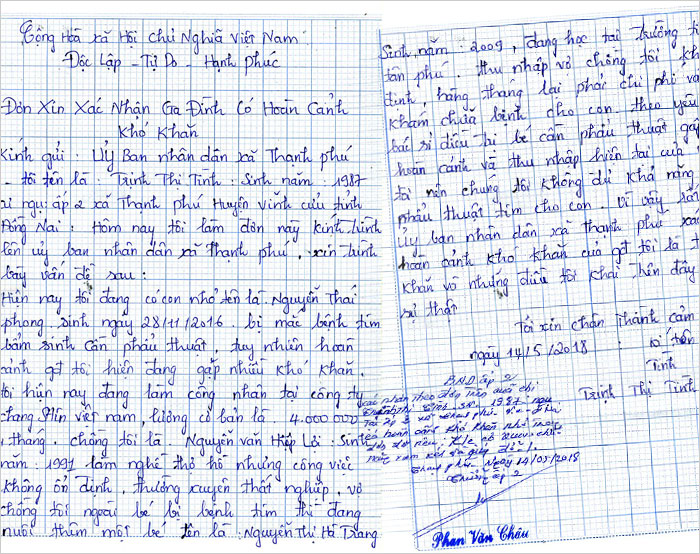 Cộng Hoà xã Hội Chủ Nghĩa Việt Nam
Độc Lập - Tự Do - Hạnh Phúc
Đơn Xin Xác Nhận Ga Đình Có Hoàn Cảnh
Khó Khăn
Kính gửi : Uỷ Ban nhân dân xã Thạnh phú
- tôi tên là : Trịnh Thị Tình : Sinh năm : 1987
ngụ : ấp 2 xã Thạnh Phú Huyện Vĩnh cửu tỉnh
Đồng Nai : Hôm nay tôi làm đơn này kính trình
lên uỷ ban nhân dân xã thạnh phú, xin trình
bày vấn đề sau :
Hiện nay tôi đang có con nhỏ tên là Nguyễn Thái
phong sinh ngày 28/11/2016 bị mắc bệnh tim
bẩm sinh cần phẩu thuật, tuy nhiên hoàn
cảnh gđ tôi hiện đang gặp nhiều khó khăn.
tôi hiện nay đang làm công nhân tại công ty
chang Shin việt nam, lương cơ bản là 4.000.000
tháng. chồng tôi là Nguyễn văn Hiệp Lợi : Sinh
năm : 1991 làm nghề thợ hồ nhưng công việc
không ổn định, thường xuyên thất nghiệp, vợ
chồng tôi ngoài bé bị bệnh tim thì đang
nuôi thêm một bé tên là : Nguyễn Thị Hà Trang
Sinh năm : 2009, đang học tại trường
tân phú. thu nhập vợ chồng tôi
định, hàng tháng lại phải chi phí
khám chữa bệnh cho con. theo yêu
bác sĩ điều trị bé cần phẩu thuật gấp
hoàn cảnh và thu nhập hiện tại của
tôi nên chúng tôi không đủ khả năng
phẩu thuật tim cho con. vì vậy
Uỷ ban nhân dân xã thạnh phú
hoàn cảnh khó khăn của gđ tôi là
khăn và những điều tôi khai trên đây
sự thật
Tôi xin chân thành cảm
ngày 14/5/2018
Tình
Trịnh Thị Tình
B.N.D ấp 2
xác nhận theo đơn trên
SN 1987
Tại ấp 2 xã Thạnh phú
hoàn cảnh khó khăn
Thạnh phú, Ngày 14/05/2018
Trưởng ấp 2
Phan Văn Châu